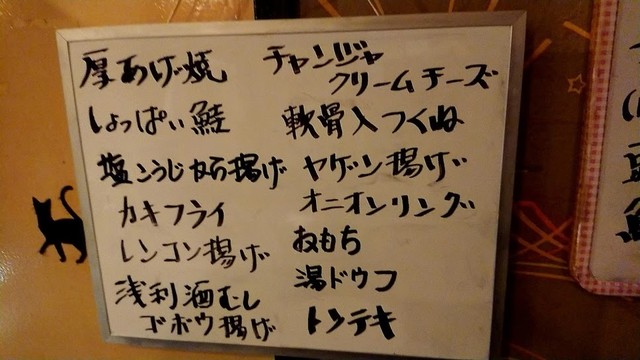 厚あげ焼
しょっぱい鮭
塩こうじから揚げ
カキフライ
レンコン揚げ
浅利酒むし
ゴボウ揚げ
チャンジャ
クリームチーズ
軟骨入つくね
ヤゲン揚げ
オニオンリング
おもち
湯ドウフ
トンテキ